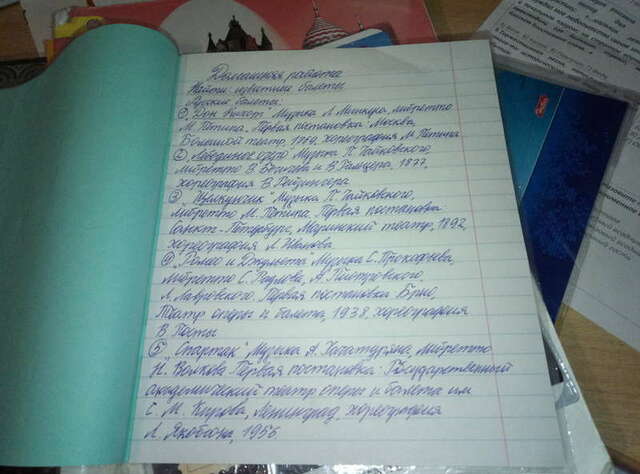 Домашняя работа
Найти: известные балеты
Русские балеты:
① „Дон Кихот" Музыка Л. Минкуса, либретто
М. Петипа. Первая постановка: Москва,
Большой театр, хореография М. Петипа
② „Лебединое озеро" Музыка П. Чайковского,
либретто В. Бегичева и В. Гельцера, 1877,
хореография В. Рейзингера
③ „Щелкунчик" Музыка П. Чайковского,
либретто М. Петипа. Первая постановка
Санкт-Петербург, Мариинский театр, 1892,
хореография Л. Иванова
④ „Ромео и Джульетта" Музыка С. Прокофьева,
либретто С. Радлова, А. Пиотровского,
Л. Лавровского. Первая постановка Брно,
Театр оперы и балета, 1938, хореография
В Псоты
⑤ „Спартак" Музыка А. Хачатуряна, либретто
Н. Волкова. Первая постановка: Государственный
академический театр оперы и балета им
С. М. Кирова, Ленинград, хореография
Л. Якобсона, 1956